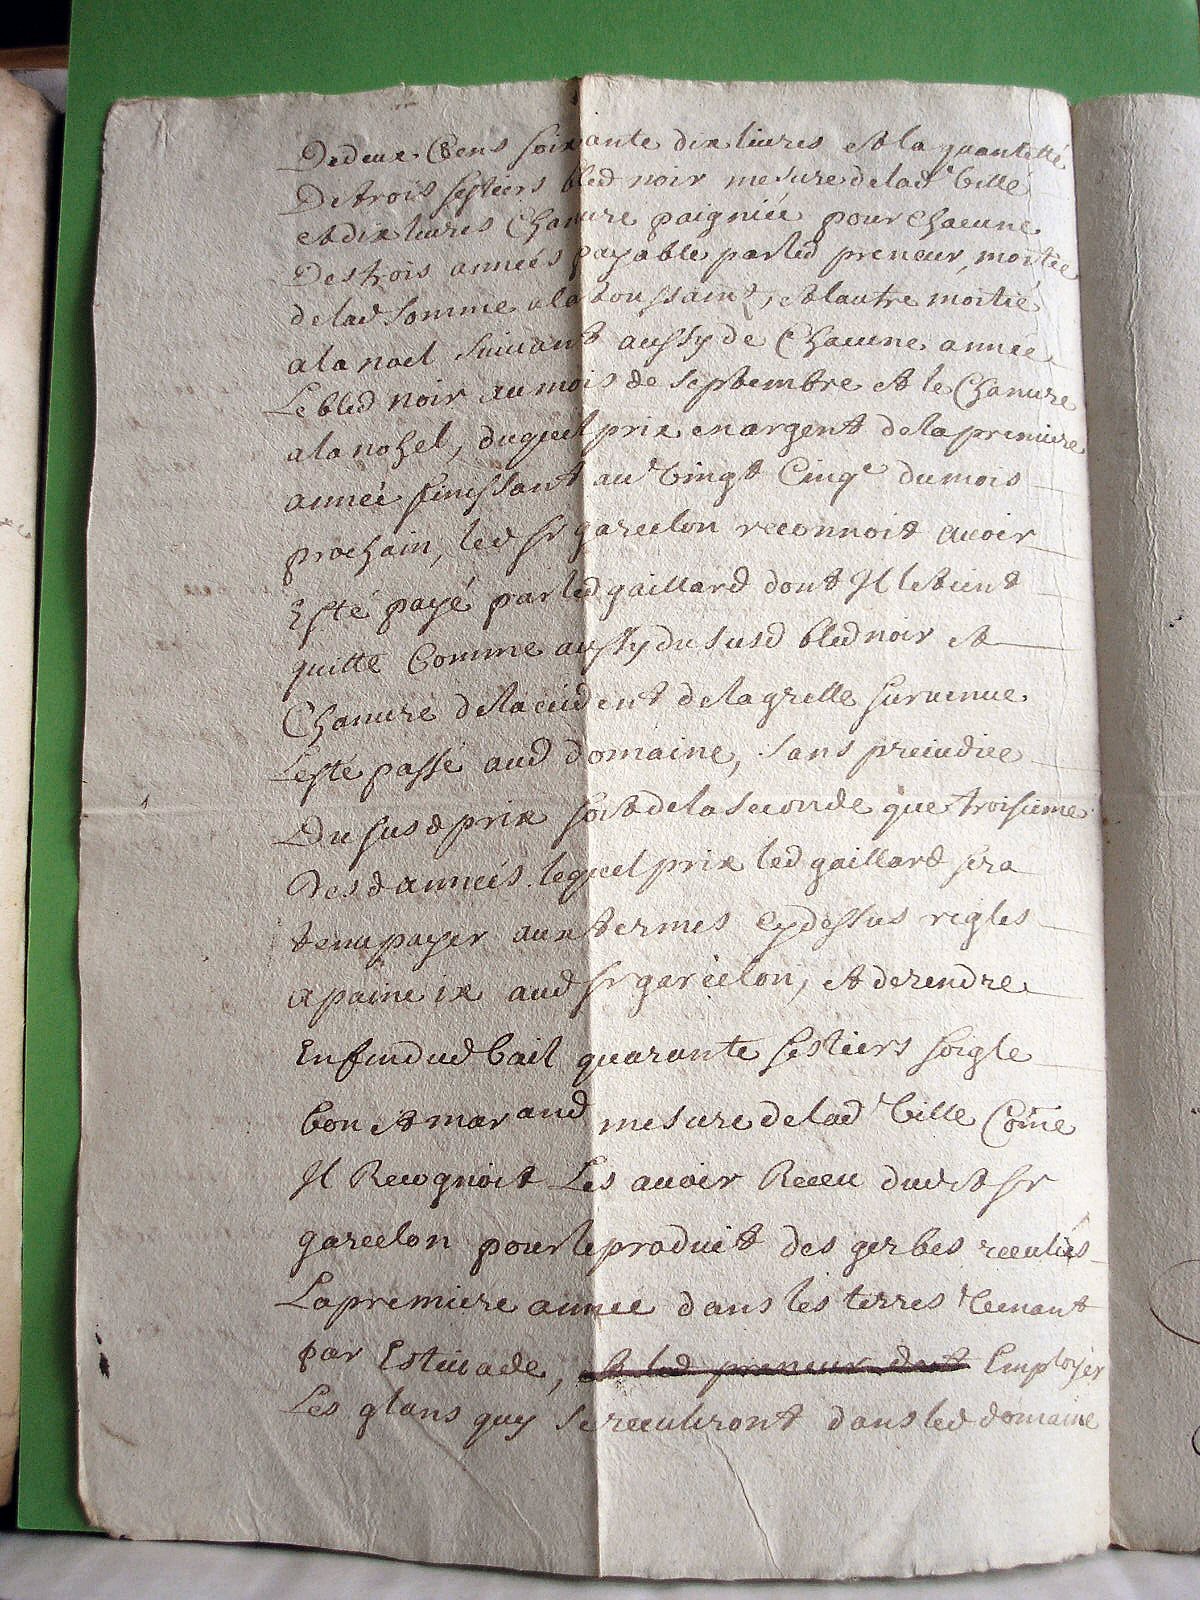 De deux Cens soixante dix livres et la quantetté
De trois sestiers bled noir mesure de lad ville
et dix livres Chanvre paigniée pour Chacune
Des trois années payable par led preneur, moitié
de lad somme a la toussaint, et lautre moitié
a la noel suivant aussy de Chacune année
Le bled noir au mois de septembre et le Chanvre
a la nohel, duquel prix en argent de la premiere
année finissant au vingt Cinqe du mois
prochain, led sr garcelon reconnoit avoir
Esté payé par led gaillard dont Il le tient
quitte Comme aussy du susd bled noir et
Chanvre de laccident de la grelle survenue
Lesté passé aud domaine, sans preiudice
Du susd prix soit de la seconde que troisieme
Desd années lequel prix led gaillard sera
tenu payer aux termes cy dessus regles
a paine ix aud sr garcelon, et de rendre
En fin dud bail quarante sestiers soigle
bon et marand mesure de lad ville Come
Il Recognoit Les avoir Receu dudit sr
garcelon pour le produit des gerbes receulies
La premiere année dans les terres venant
par Estivade, et led preneur doit Employer
Les glans quy se receuliront dans led domaine